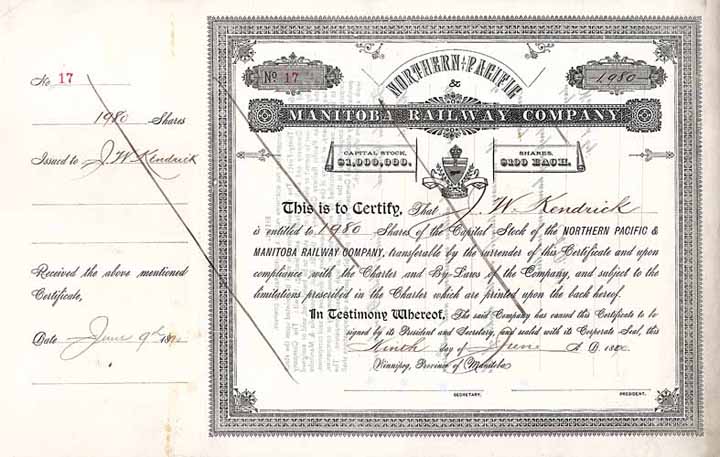 No. 17
1980 Shares
Issued to J. W. Kendrick
Received the above mentioned
Certificate,
Date June 9th 18
No 17
1980
NORTHERN PACIFIC
&
MANITOBA RAILWAY COMPANY
CAPITAL STOCK,
$1,000,000.
SHARES,
$100 EACH.
This is to Certify, That J. W. Kendrick
is entitled to 1980 Shares of the Capital Stock of the NORTHERN PACIFIC &
MANITOBA RAILWAY COMPANY, transferable by the surrender of this Certificate and upon
compliance with the Charter and By-Laws of the Company, and subject to the
limitations prescribed in the Charter which are printed upon the back hereof.
In Testimony Whereof, The said Company has caused this Certificate to be
signed by its President and Secretary, and sealed with its Corporate Seal, this
Ninth day of June A. D. 18
Winnipeg, Province of Manitoba
SECRETARY.
PRESIDENT.